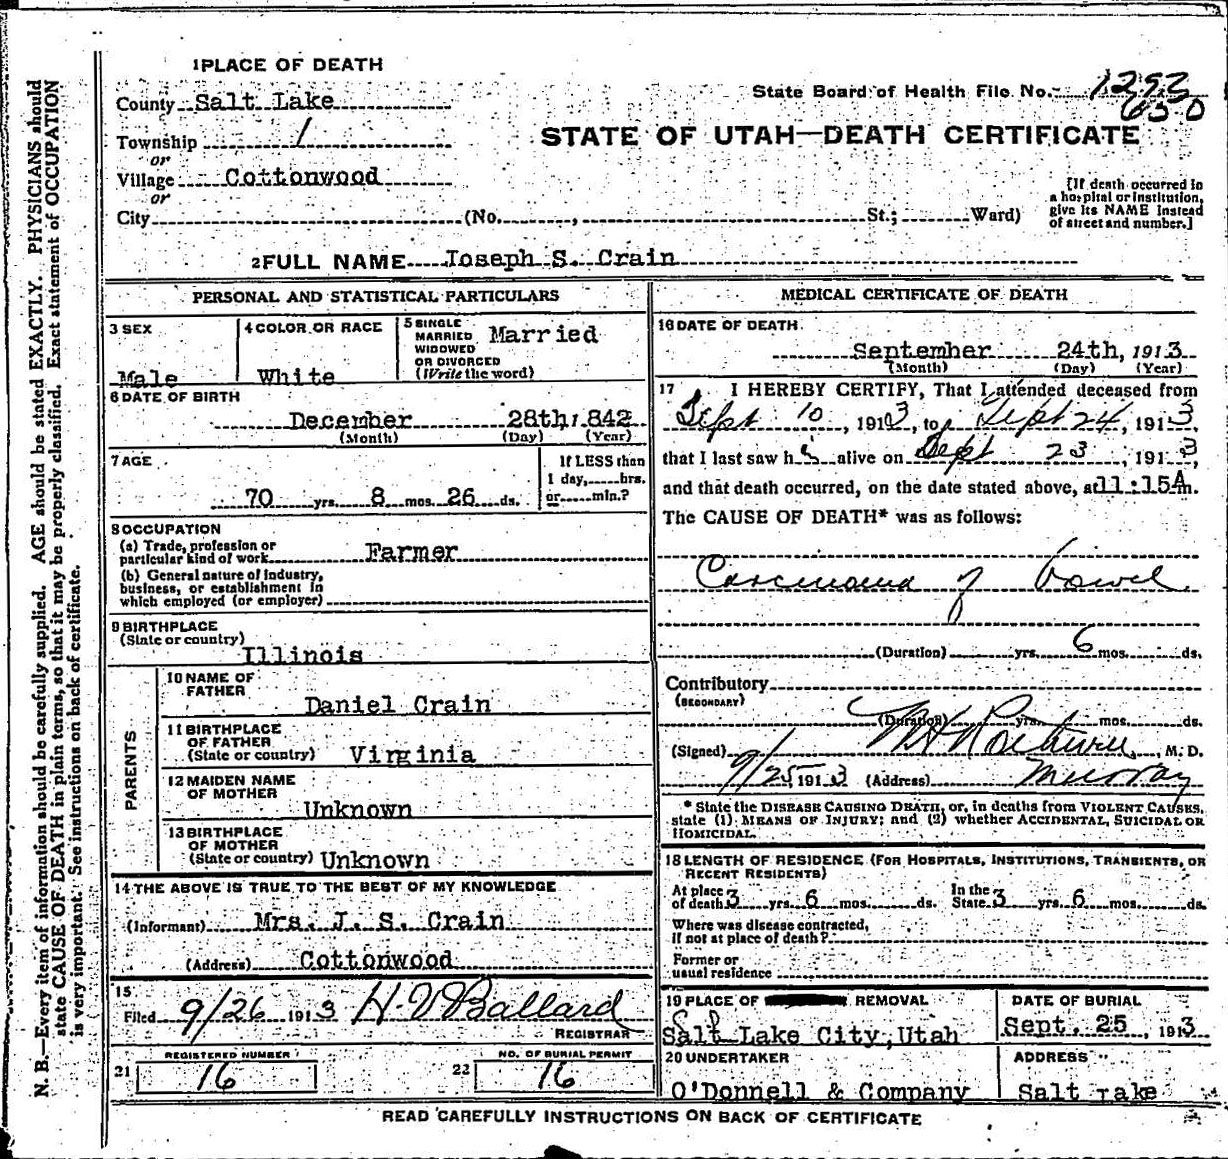 N. B.—Every item of information should be carefully supplied. AGE should be stated EXACTLY. PHYSICIANS should
state CAUSE OF DEATH in plain terms, so that it may be properly classified. Exact statement of OCCUPATION
is very important. See instructions on back of certificate.
1 PLACE OF DEATH
County Salt Lake
State Board of Health File No. 1293
650
Township /
STATE OF UTAH—DEATH CERTIFICATE
or
Village Cottonwood
or
City (No. , St.; Ward)
[If death occurred in
a hospital or institution,
give its NAME instead
of street and number.]
2 FULL NAME Joseph S. Crain
PERSONAL AND STATISTICAL PARTICULARS
3 SEX
Male
4 COLOR OR RACE
White
5 SINGLE
MARRIED
WIDOWED
OR DIVORCED
(Write the word)
Married
6 DATE OF BIRTH
December 28th, 1842
(Month) (Day) (Year)
7 AGE
70 yrs. 8 mos. 26 ds.
If LESS than
1 day, hrs.
or min.?
8 OCCUPATION
(a) Trade, profession or
particular kind of work Farmer
(b) General nature of industry,
business, or establishment in
which employed (or employer)
9 BIRTHPLACE
(State or country)
Illinois
PARENTS
10 NAME OF
FATHER
Daniel Crain
11 BIRTHPLACE
OF FATHER
(State or country) Virginia
12 MAIDEN NAME
OF MOTHER
Unknown
13 BIRTHPLACE
OF MOTHER
(State or country) Unknown
14 THE ABOVE IS TRUE TO THE BEST OF MY KNOWLEDGE
(Informant) Mrs. J. S. Crain
(Address) Cottonwood
15
Filed 9/26 1913 H. V. Ballard
REGISTRAR
21 REGISTERED NUMBER
16
22 NO. OF BURIAL PERMIT
16
MEDICAL CERTIFICATE OF DEATH
16 DATE OF DEATH
September 24th, 1913
(Month) (Day) (Year)
17 I HEREBY CERTIFY, That I attended deceased from
Sept 10, 1913, to Sept 24, 1913,
that I last saw h i alive on Sept 23, 1913,
and that death occurred, on the date stated above, at 11:15 A m.
The CAUSE OF DEATH* was as follows:
Carcinoma of bowel
(Duration) yrs. 6 mos. ds.
Contributory
(SECONDARY)
(Duration) yrs. mos. ds.
(Signed) , M. D.
9/25, 1913 (Address) Murray
* State the DISEASE CAUSING DEATH, or, in deaths from VIOLENT CAUSES,
state (1) MEANS OF INJURY; and (2) whether ACCIDENTAL, SUICIDAL OR
HOMICIDAL.
18 LENGTH OF RESIDENCE (FOR HOSPITALS, INSTITUTIONS, TRANSIENTS, OR
RECENT RESIDENTS)
At place
of death 3 yrs. 6 mos. ds.
In the
State 3 yrs. 6 mos. ds.
Where was disease contracted,
if not at place of death?
Former or
usual residence
19 PLACE OF REMOVAL
Salt Lake City, Utah
DATE OF BURIAL
Sept. 25, 1913
20 UNDERTAKER
O'Donnell & Company
ADDRESS
Salt Lake
READ CAREFULLY INSTRUCTIONS ON BACK OF CERTIFICATE